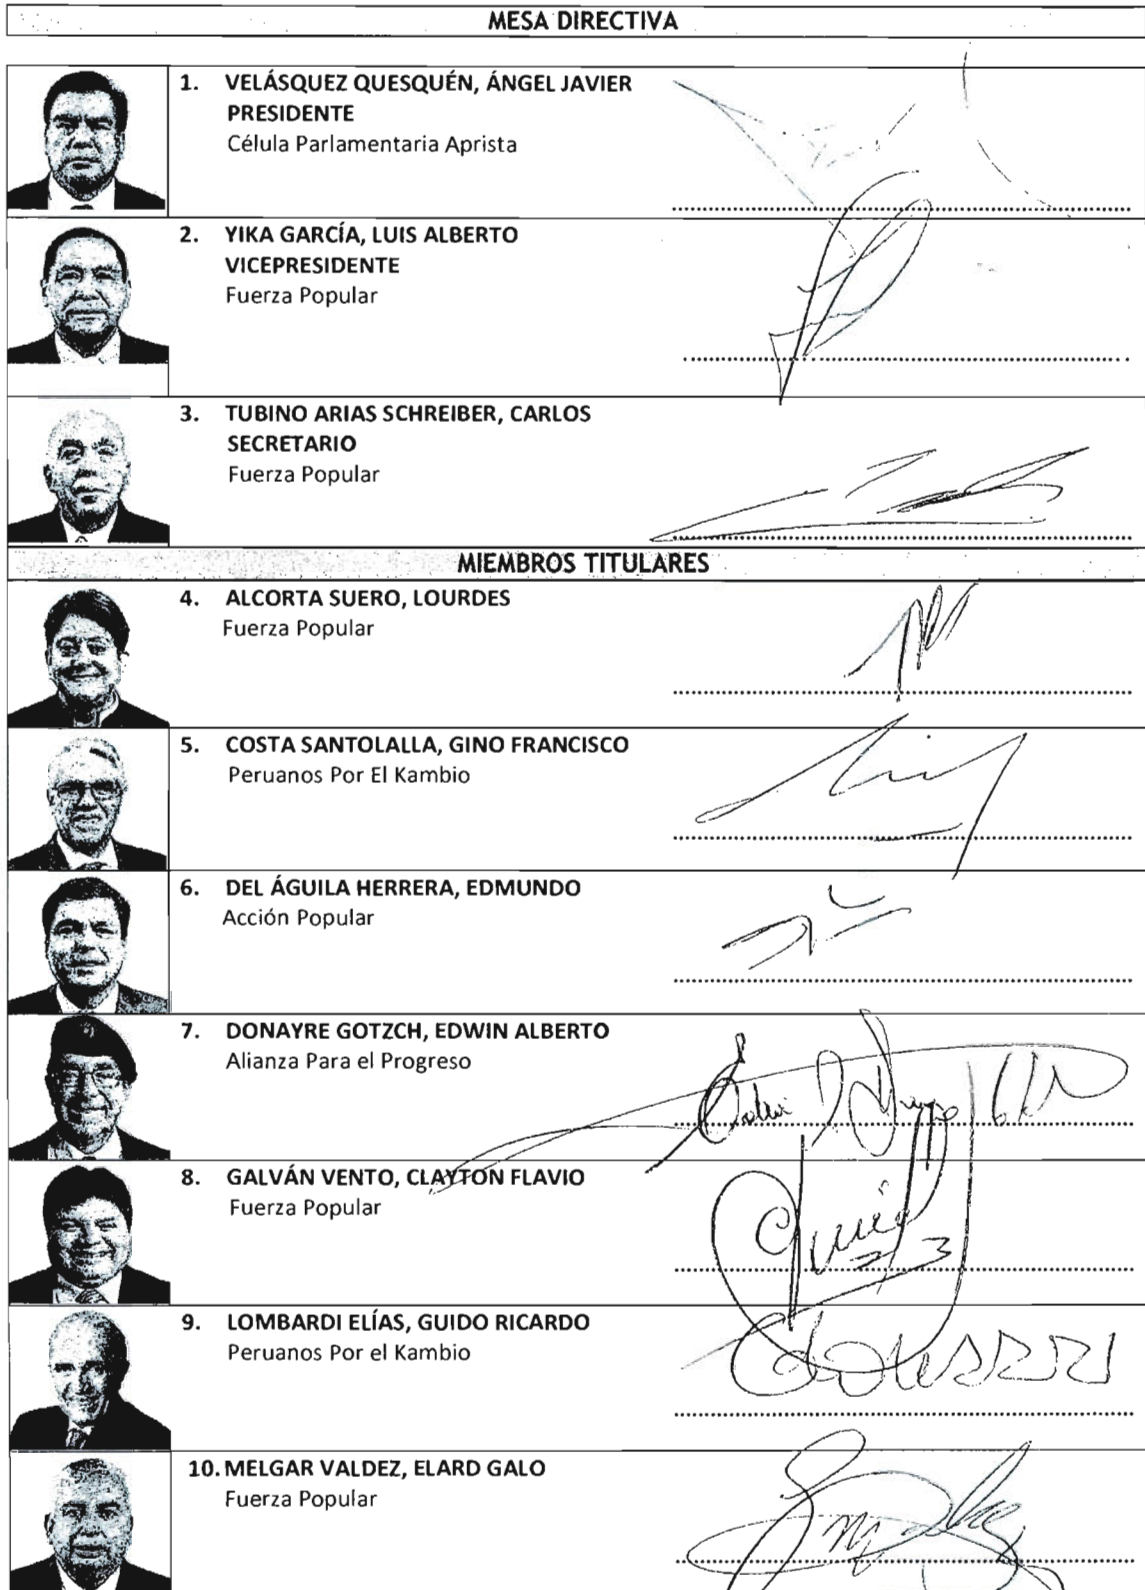 MESA DIRECTIVA
1. VELÁSQUEZ QUESQUÉN, ÁNGEL JAVIER
PRESIDENTE
Célula Parlamentaria Aprista
2. YIKA GARCÍA, LUIS ALBERTO
VICEPRESIDENTE
Fuerza Popular
3. TUBINO ARIAS SCHREIBER, CARLOS
SECRETARIO
Fuerza Popular
MIEMBROS TITULARES
4. ALCORTA SUERO, LOURDES
Fuerza Popular
5. COSTA SANTOLALLA, GINO FRANCISCO
Peruanos Por El Kambio
6. DEL ÁGUILA HERRERA, EDMUNDO
Acción Popular
7. DONAYRE GOTZCH, EDWIN ALBERTO
Alianza Para el Progreso
8. GALVÁN VENTO, CLAYTON FLAVIO
Fuerza Popular
9. LOMBARDI ELÍAS, GUIDO RICARDO
Peruanos Por el Kambio
10. MELGAR VALDEZ, ELARD GALO
Fuerza Popular